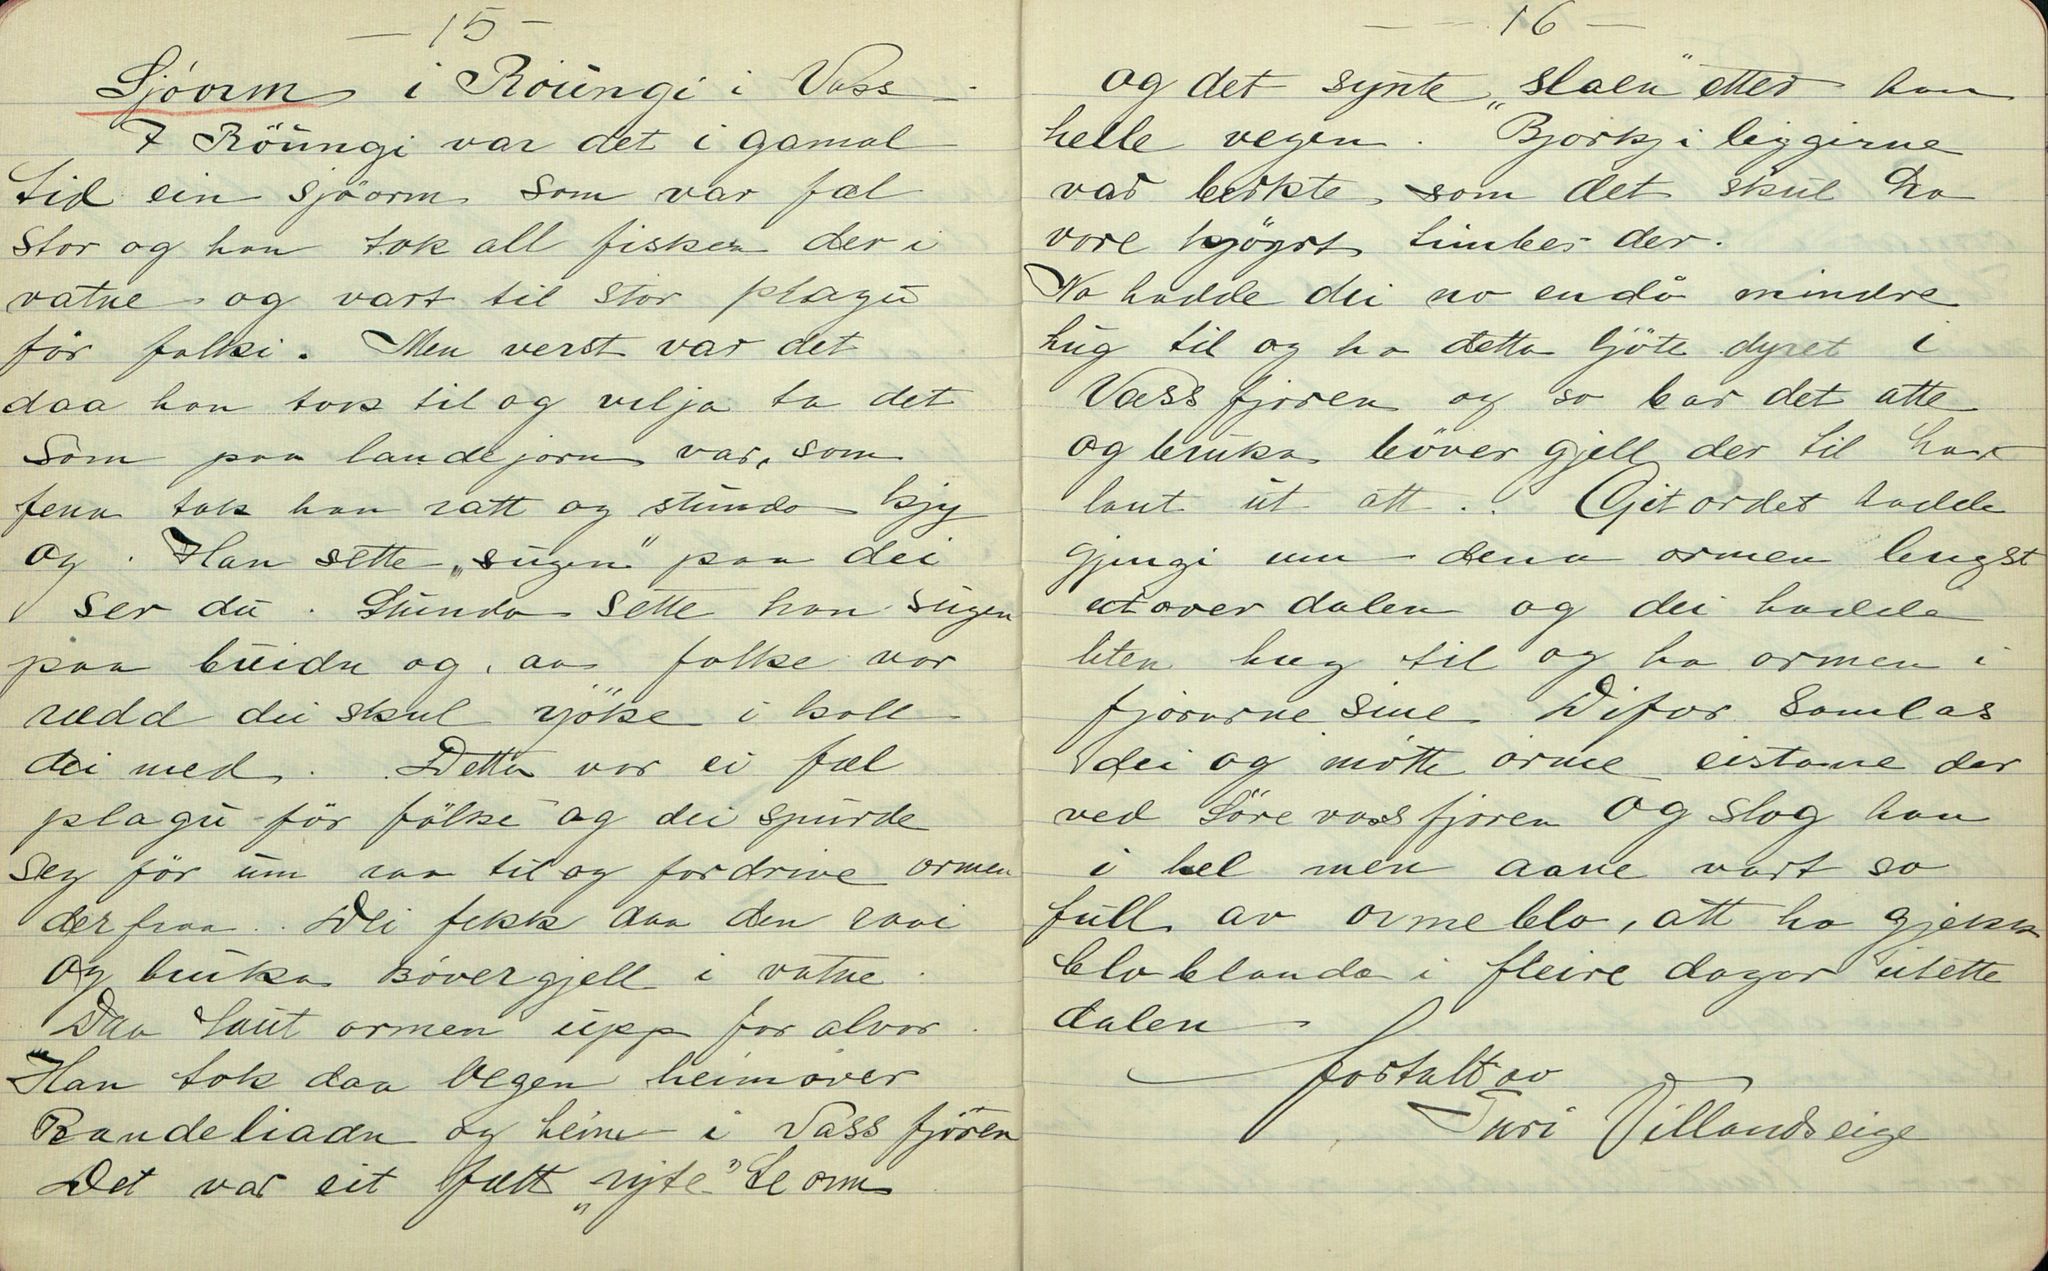 — 15 —
Sjöorm i Röungi i Vass
I Röungi var det i gamal
tid ein sjöorm som var fæl
stor og han tok all fisken der i
vatne og vart til stor plagu
för folki. Men verst var det
daa han tok til og vilja ta det
som paa landejorn var, som
fena tok han ratt og stundo kjy
og. Han sette „sugen" paa dei
ser du. Stundo sette han sugen
paa buidn og, aa folke var
rædd dei skul rjöke i koll
dei med. Detta var ei fæl
plagu för fölke og dei spurde
seg för um raa til og fordrive ormen
derfraa. Dei fekk daa den raai
og bruka bövergjell i vatne.
Daa laut ormen upp for alvor.
Han tok daa vegen heimover
Randeliadn og heim i Vassfjören
Det var eit fælt „ryte" te orm
— 16 —
og det synte „slaen" etter han
heile vegen. Bjorkji liggjirne
var berkte, som det skul ha
vore kjögrt timber der.
No hadde dei no endå mindre
hug til og ha detta ljöte dyret i
Vassfjoren og so bar det atte
og bruka bövergjell der til han
laut ut att. Gjetordet hadde
gjengi um denn ormen lengst
utover dalen og dei hadde
liten hug til og ha ormen i
fjorarne sine. Difor samlas
dei og mötte orme eistane der
ved Söre vassfjoren og slog han
i hel men aane vart so
full av ormeblo, att ho gjekk
bloblanda i fleire dagar utette
dalen
fortalt av
Turi Villandseige